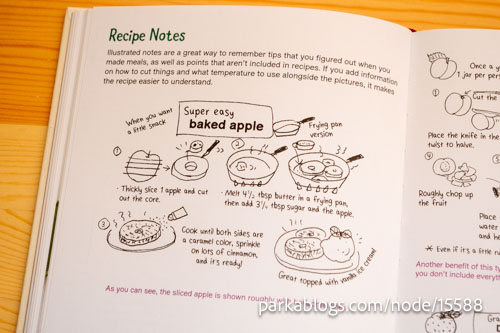 Recipe Notes
Illustrated notes are a great way to remember tips that you figured out when you
made meals, as well as points that aren't included in recipes. If you add information
on how to cut things and what temperature to use alongside the pictures, it makes
the recipe easier to understand.
When you want
a little snack
Super easy
baked apple
Frying pan
version
①
· Thickly slice 1 apple and cut
out the core.
②
· Melt 4½ tbsp butter in a frying pan,
then add 3½ tbsp sugar and the apple.
③
Cook until both sides are
a caramel color, sprinkle
on lots of cinnamon,
and it's ready!
Great topped with vanilla ice cream!
As you can see, the sliced apple is shown roughly
Once a
1 jar per pers
①
Cut the
Place the knife in the
twist to halve.
④
⑤
Roughly chop up
the fruit
Place
water
and he
* Even if it's a little
Another benefit of this ty
you don't include everyth
Gra
parkablogs.com/node/15588